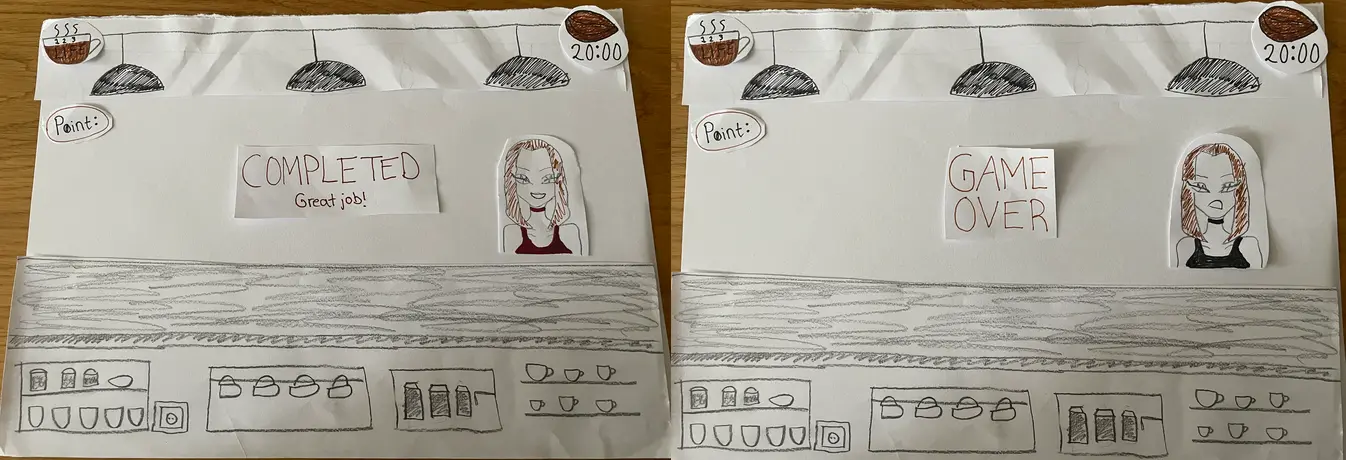 1 2 3
LIFE
20:00
Point:
COMPLETED
Great job!
1 2 3
LIFE
20:00
Point:
GAME
OVER